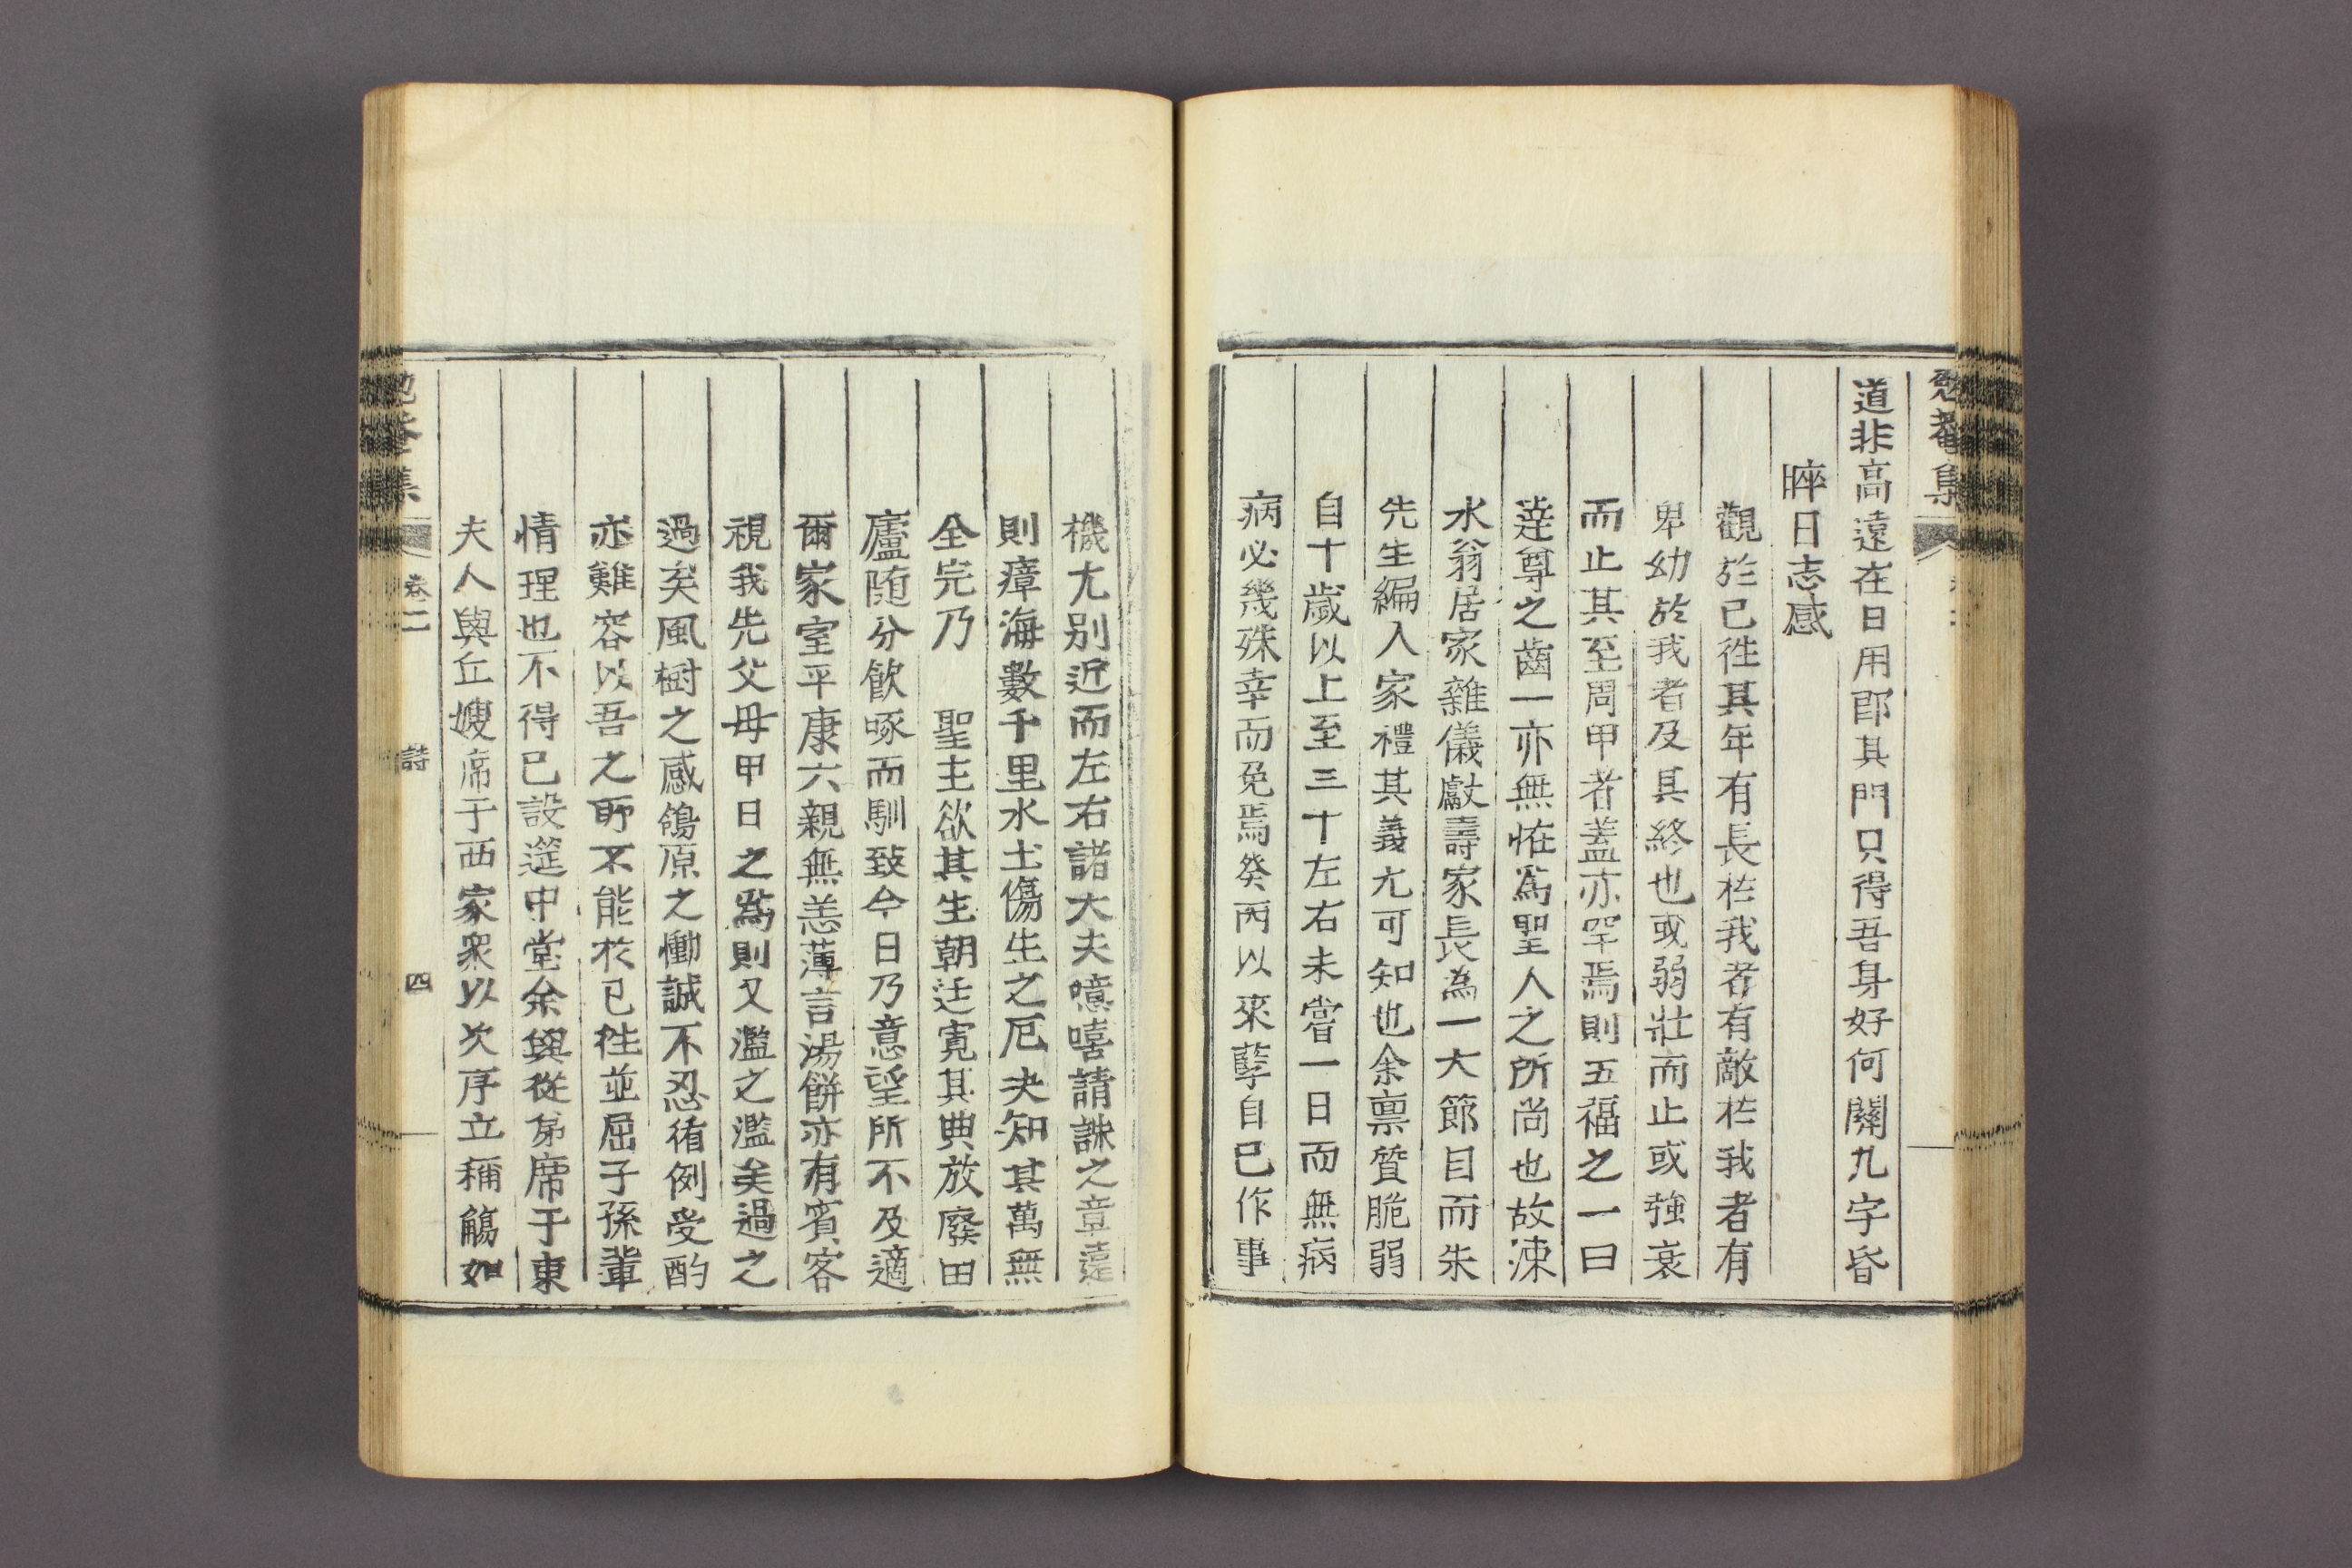 道非高遠在日用郎其門只得吾身好何關九字昏
晬日志感
觀於已徃其年有長於我者有敵於我者有
卑幼於我者及其終也或弱壯而止或強衰
而止其至周甲者蓋亦罕焉則五福之一曰
達尊之齒一亦無恠爲聖人之所尚也故涑
水翁居家雜儀獻壽家長為一大節目而朱
先生編入家禮其義尤可知也余禀質脆弱
自十歲以上至三十左右未嘗一日而無病
病必幾殊幸而免焉癸丙以來孽自己作事
機尤别近而左右諸大夫噫嘻請誅之章遠
則瘴海數千里水土傷生之厄夫知其萬無
全完乃 聖主欲其生朝廷寛其典放廢田
廬随分飮啄而馴致今日乃意望所不及適
爾家室平康六親無恙薄言湯餠亦有賓客
視我先父母甲日之爲則又濫之濫矣過之
過矣風樹之感鴒原之慟誠不忍循例受酌
亦難容以吾之所不能於已徃並屈子孫輩
情理也不得已設筵中堂余與從弟席于東
夫人與丘嫂席于西家衆以次序立稱觴如
卷二
詩
四